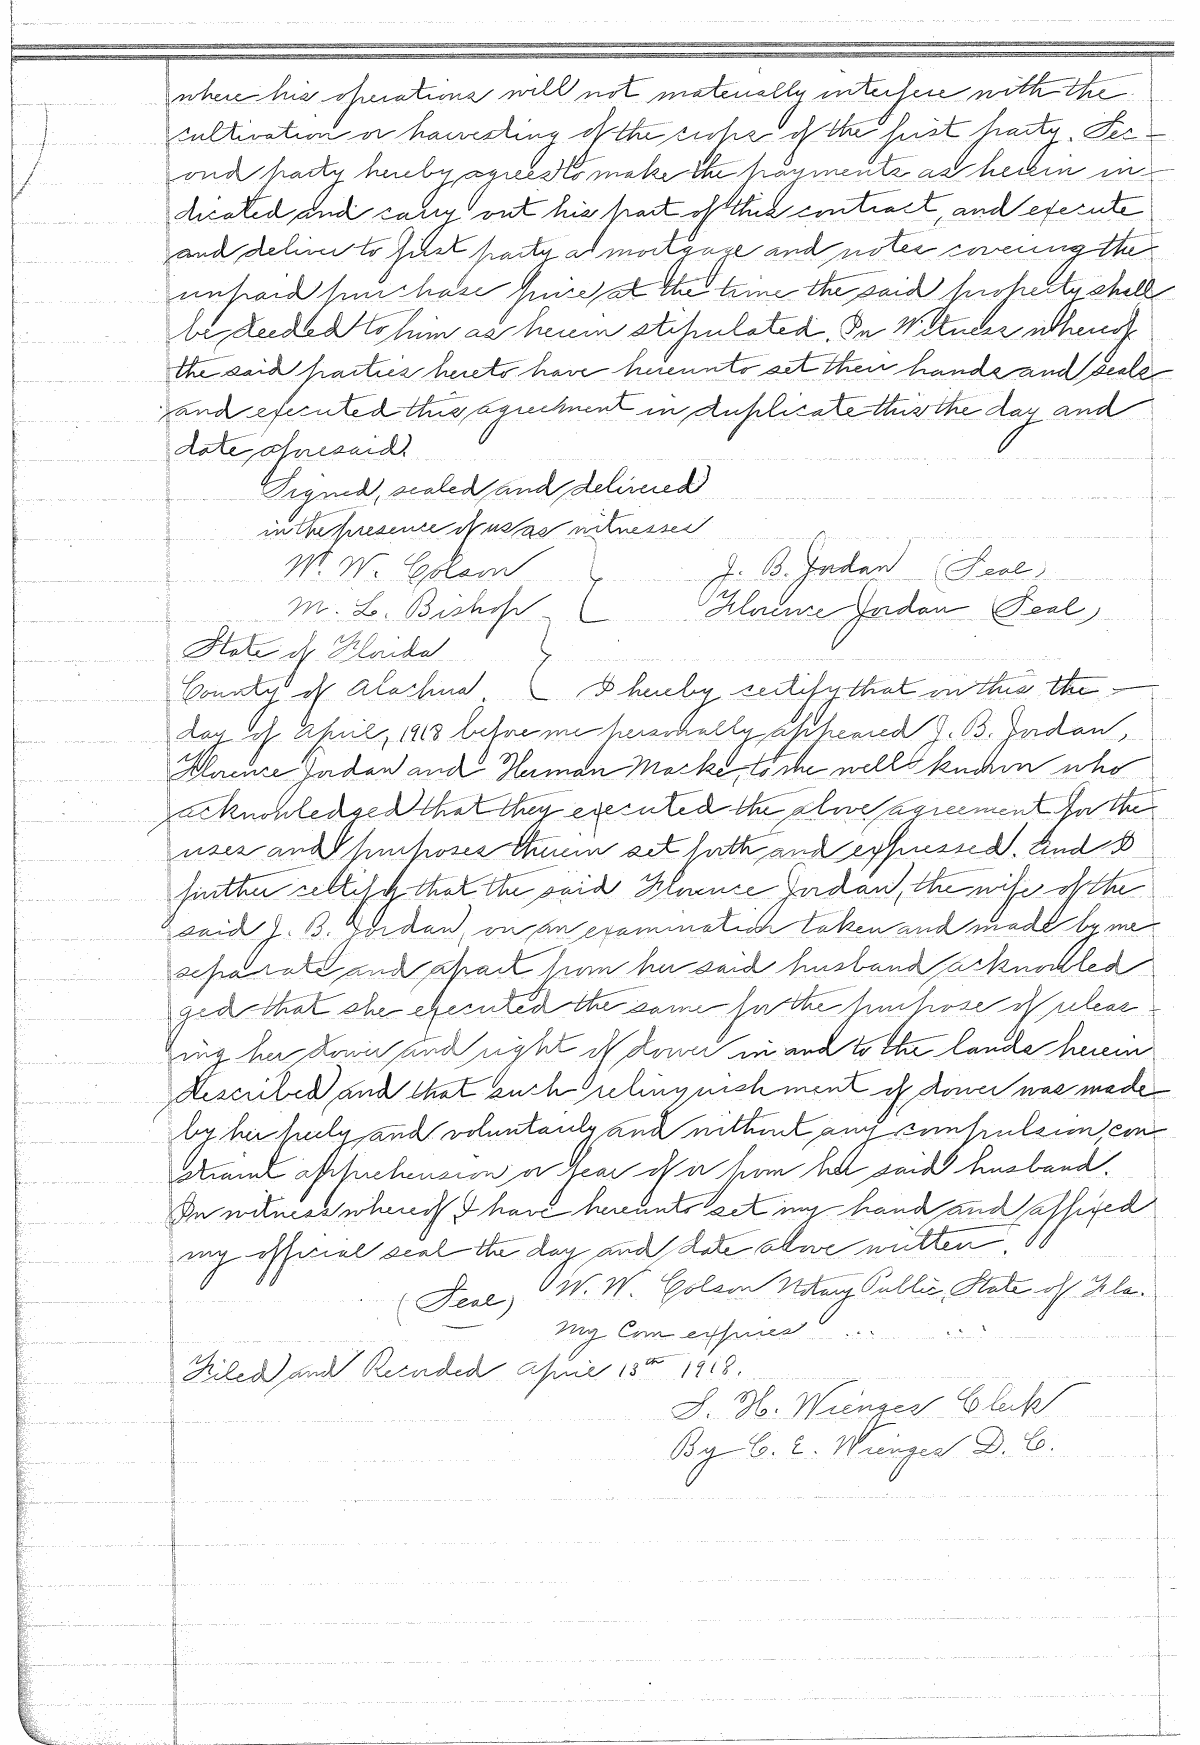 where his operations will not materially interfere with the
cultivation or harvesting of the crops of the first party. Sec-
ond party hereby agrees to make the payments as herein in-
dicated and carry out his part of this contract, and execute
and deliver to first party a mortgage and notes covering the
unpaid purchase price at the time the said property shall
be deeded to him as herein stipulated. In Witness whereof
the said parties hereto have hereunto set their hands and seals
and executed this agreement in duplicate this the day and
date aforesaid.
Signed, sealed and delivered
in the presence of us as witnesses
W. W. Colson J. B. Jordan (Seal)
M. L. Bishop Florence Jordan (Seal)
State of Florida
County of Alachua. I hereby certify that on this the —
day of April, 1918 before me personally appeared J. B. Jordan,
Florence Jordan and Herman Macke, to me well known who
acknowledged that they executed the above agreement for the
uses and purposes therein set forth and expressed. And I
further certify that the said Florence Jordan, the wife of the
said J. B. Jordan, on an examination taken and made by me
separate and apart from her said husband acknowled
ged that she executed the same for the purpose of releas-
ing her dower and right of dower in and to the lands herein
described and that such relinquishment of dower was made
by her freely and voluntarily and without any compulsion, con-
straint apprehension or fear of or from her said husband.
In witness whereof I have hereunto set my hand and affixed
my official seal the day and date above written.
(Seal) W. W. Colson Notary Public, State of Fla.
My Com expires ... ...
Filed and Recorded April 13th 1918.
S. H. Wienges Clerk
By C. E. Wienges D. C.